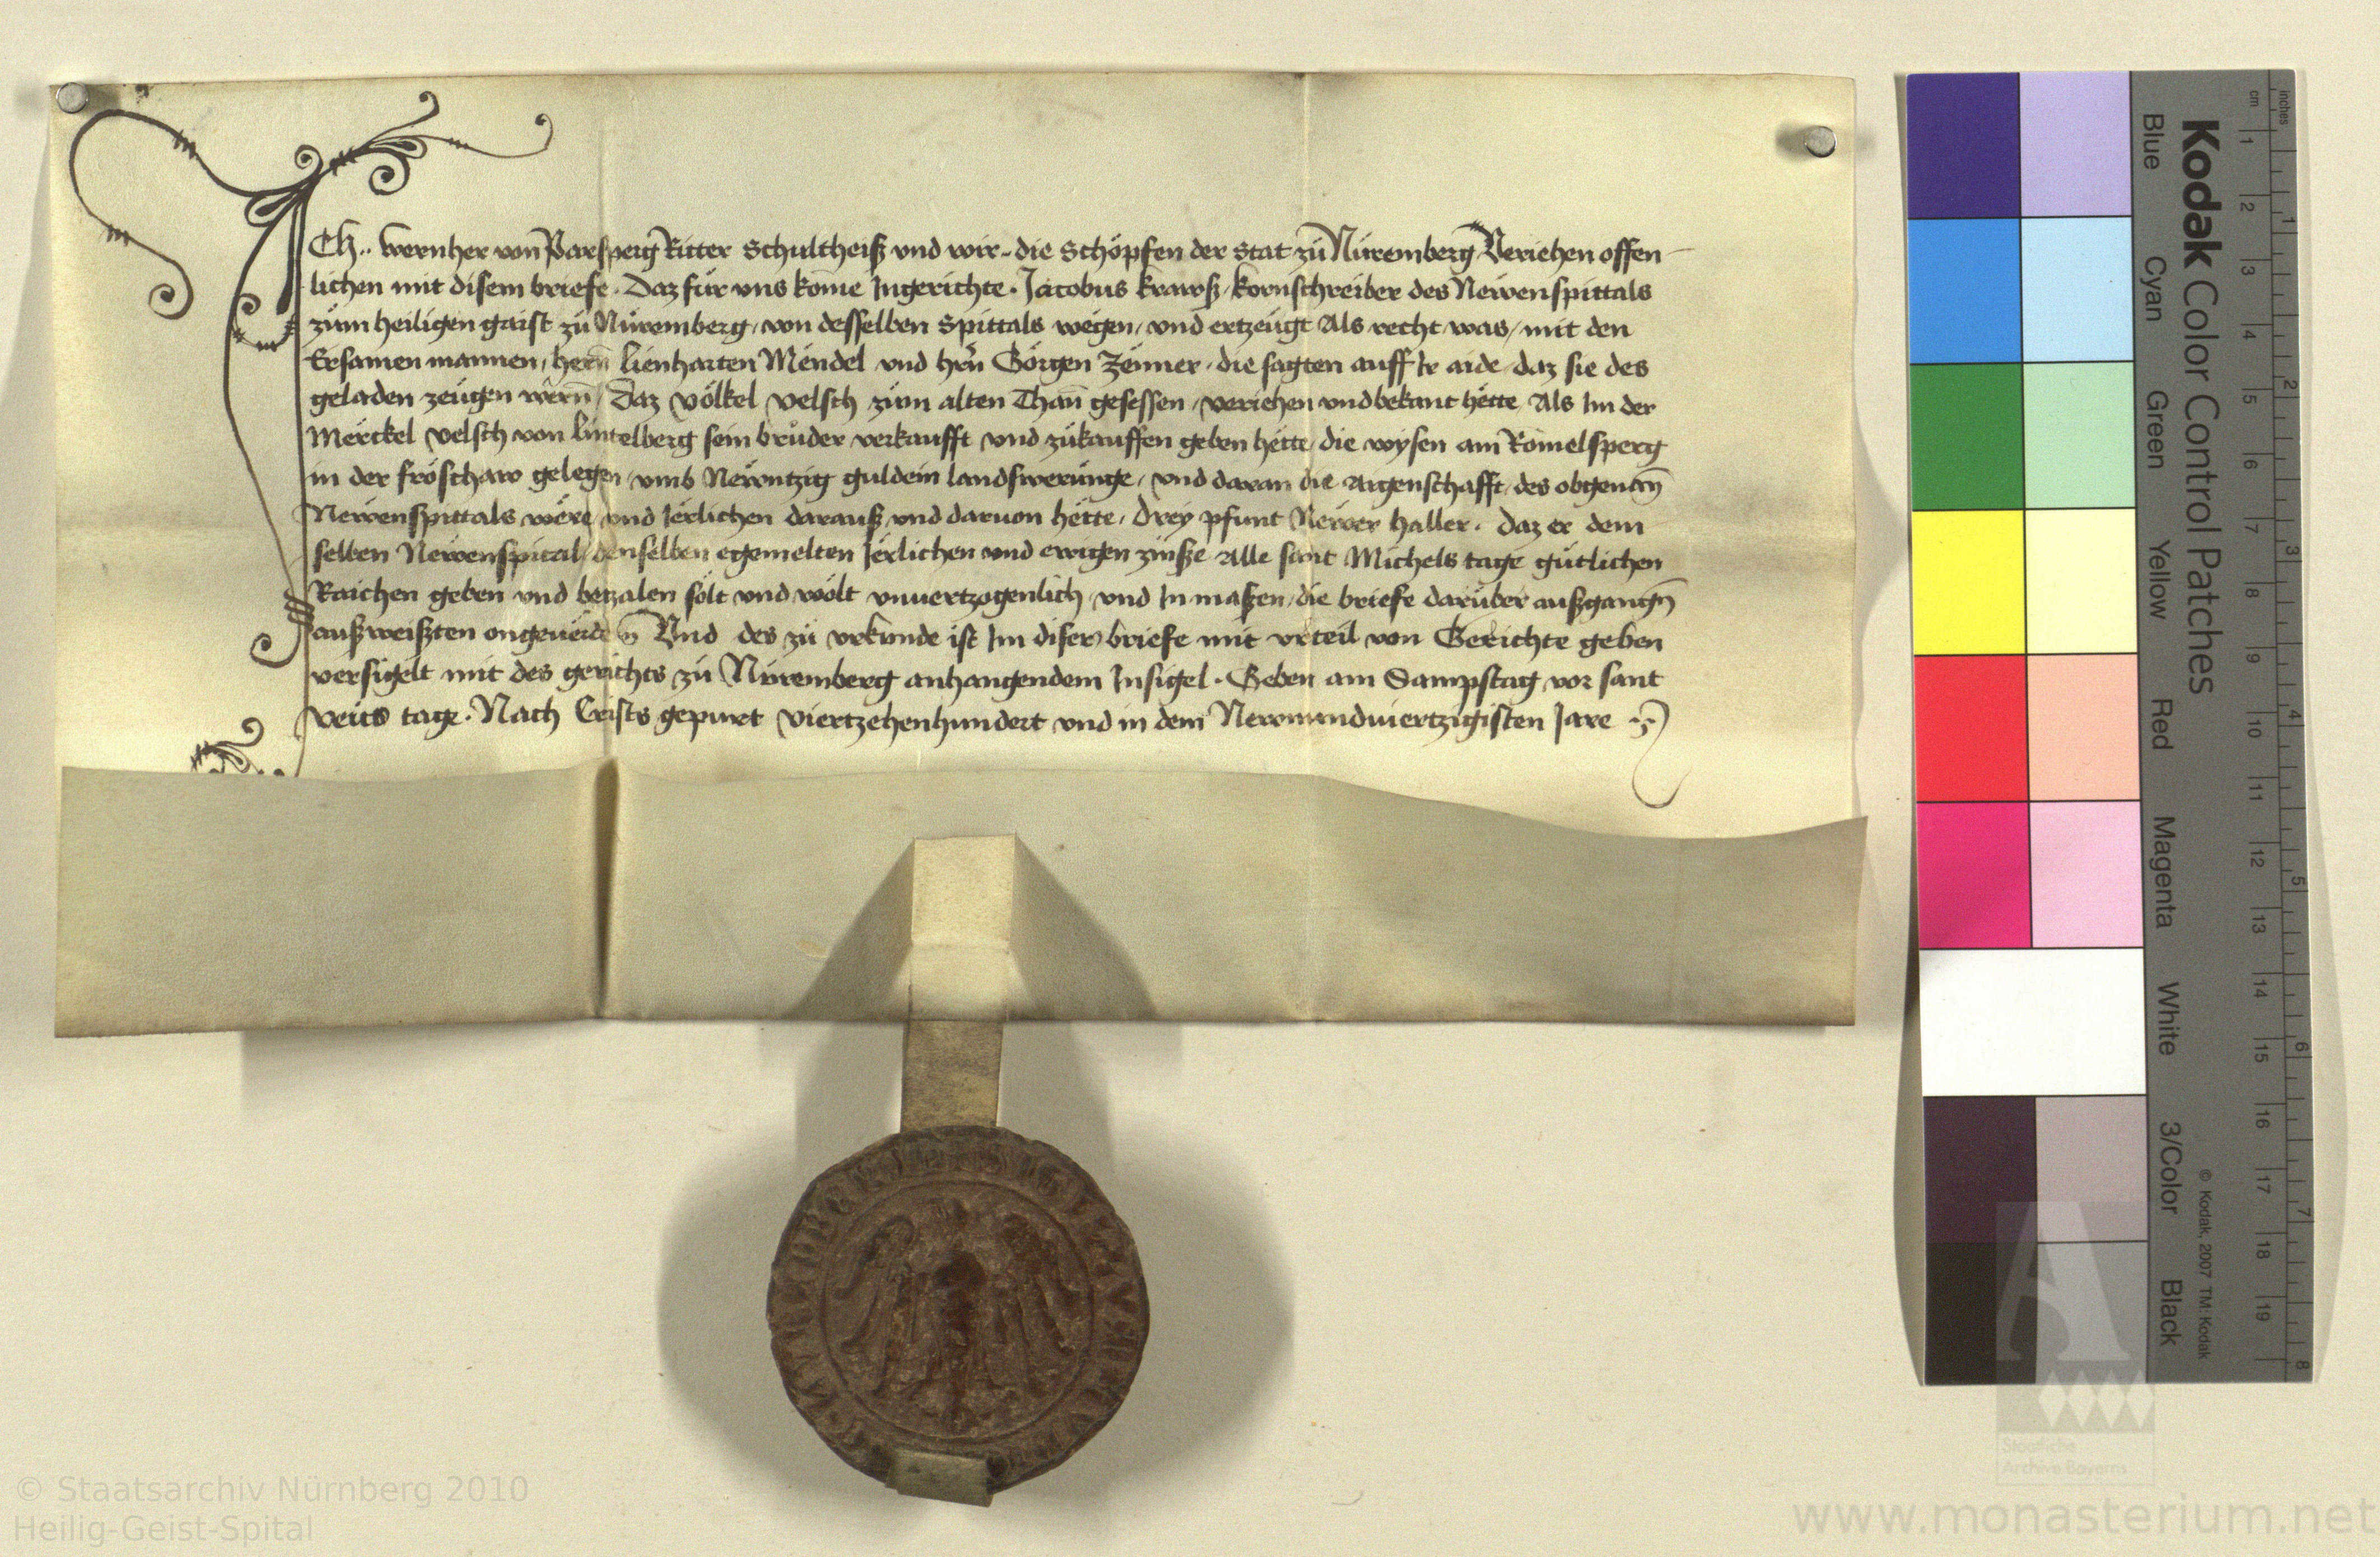 ICh .. Wernher von Parsperg Ritter Schultheiß vnd wir die Schöpfen der Stat zů Nüremberg Veriehen offen
lichen mit disem briefe . Daz für vns kome Ingerichte . Jacobus krawß kornschreiber des Newenspittals
zům heiligen gaist zů Nüremberg von desselben Spittals wegen vnd ertzeugt Als recht was mit den
Ersamen mannen hern Lienharten Mendel vnd hrn Görgen Zenner die sagten auff Ir aide daz sie des
geladen zeugen wern Daz völkel velsch zům alten Than gesessen veriehen vnd bekant hette Als Im der
Merckel velsch von Lintelberg sein brůder verkaufft vnd zůkauffen geben hette die wysen am Romelsperg
in der fröschaw gelegen vmb Newntzig guldein landswerunge vnd daran die Aigenschafft des obgenan
Newenspittals were vnd Jerlichen darauß vnd daruon hette Drey pfunt Newer haller . Daz er dem
selben Newenspital denselben egemelten Jerlichen vnd ewigen zinße Alle sant Michels tage gütlichen
Raichen geben vnd betzalen sölt vnd wölt vnuertzogenlich vnd In maßen die briefe darüber außgangn
außweißten Vnd des zů vrkunde ist Im diser briefe mit vrteil von Gerichte geben
versigelt mit des gerichts zů Nüremberg anhangendem Insigel . Geben am Sampstag vor sant
veits tage . Nach Crists gepurt viertzehenhundert vnd in dem Newnundviertzigisten Jare
Kodak Color Control Patches
Blue Cyan Green Yellow Red Magenta White 3/Color Black
© Kodak, 2007 TM: Kodak
cm 1 2 3 4 5 6 7 8 9 10 11 12 13 14 15 16 17 18 19
inches 1 2 3 4 5 6 7 8
Staatliche
Archive Bayerns
© Staatsarchiv Nürnberg 2010
Heilig-Geist-Spital
www.monasterium.net